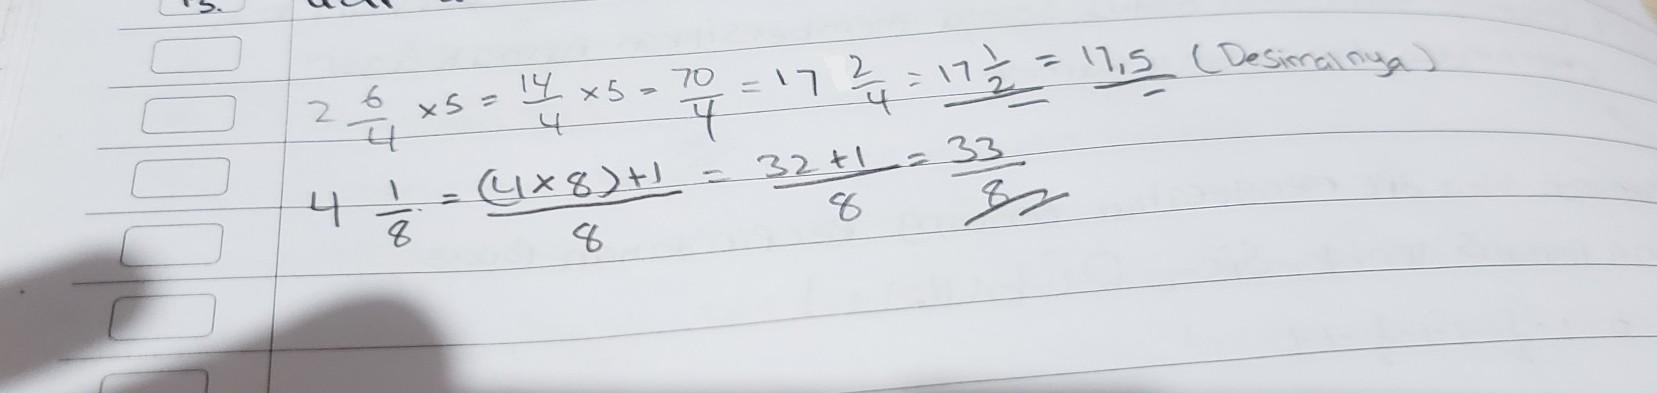 2 6/4 x 5 = 14/4 x 5 = 70/4 = 17 2/4 = 17 1/2 = 17,5 (Desimalnya)
4 1/8 = (4 x 8) + 1/8 = 32 + 1/8 = 33/8